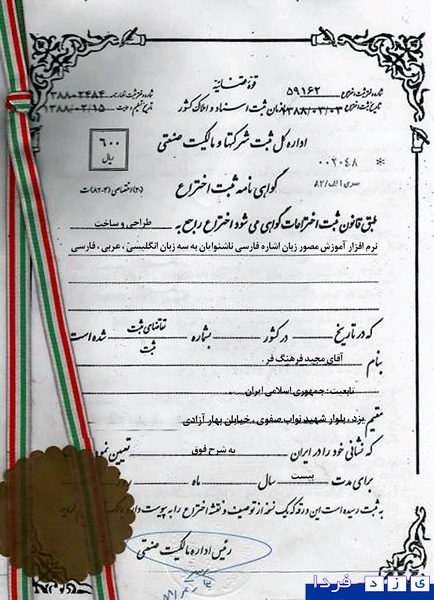 قوهٔ قضائیه
شماره ثبت اختراع ۵۹۱۶۲
شماره ثبت اظهارنامه ۳۸۸۰۲۴۸۴
سازمان ثبت اسناد و املاک کشور
تاریخ ثبت اختراع ۱۳۸۸/۰۳/۰۳
۱۳۸۸/۰۲/۱۵
اداره کل ثبت شرکتها و مالکیت صنعتی
۶۰۰ ریال
۰۰۲۰۴۸ *
سری ۱ الف/۸۲
گواهی نامه ثبت اختراع
طبق قانون ثبت اختراعات گواهی می شود اختراع راجع به طراحی و ساخت
نرم افزار آموزش مصور زبان اشاره فارسی ناشنوایان به سه زبان انگلیسی، عربی، فارسی
که در تاریخ در کشور بشماره تقاضای ثبت شده است
ثبت
بنام آقای مجید فرهنگ فر.
تابعیت: جمهوری اسلامی ایران.
مقیم یزد، بلوار شهید نواب صفوی، خیابان بهار آزادی
که نشانی خود را در ایران به شرح فوق تعیین نموده
برای مدت بیست سال ماه روز
به ثبت رسیده است این ورقه که یک نسخه از توصیف و نقشه اختراع را به پیوست دارد
رئیس اداره مالکیت صنعتی
یزد فردا